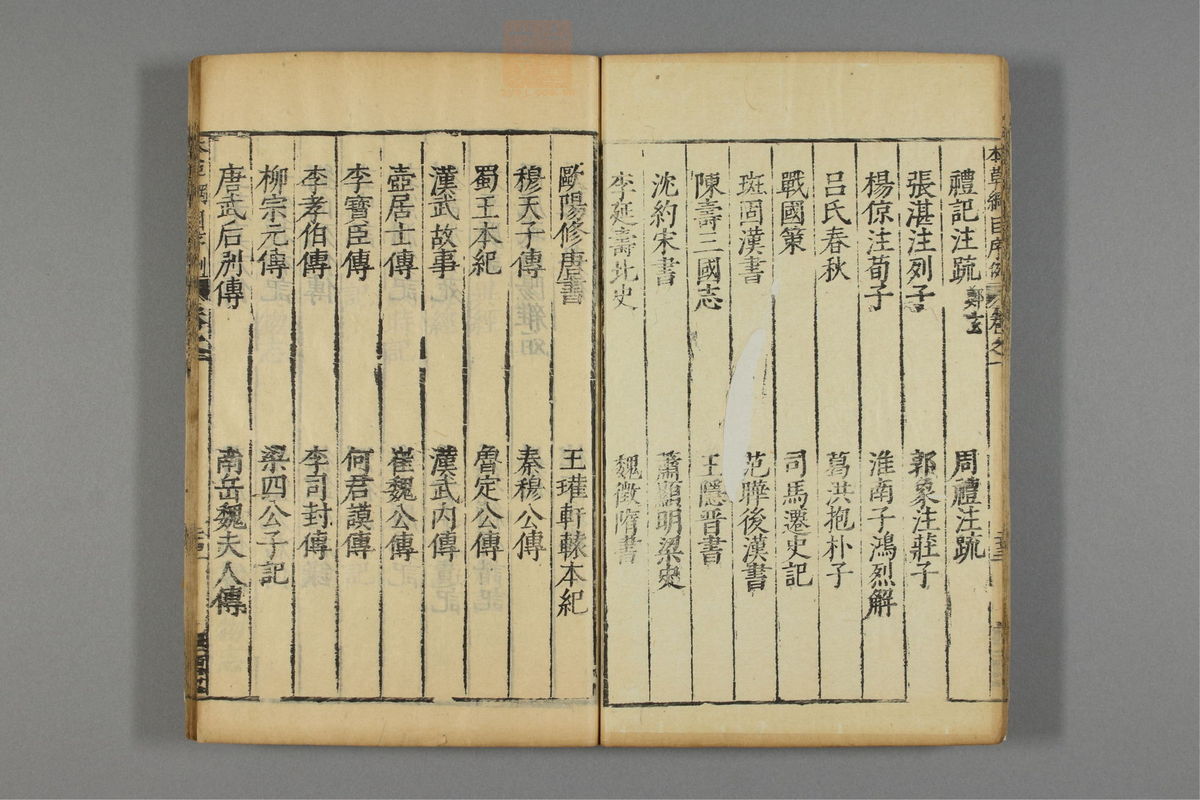 本草綱目序例 卷之一
禮記注疏 鄭玄 周禮注疏
張湛注列子 郭象注莊子
楊倞注荀子 淮南子鴻烈解
呂氏春秋 葛洪抱朴子
戰國策 司馬遷史記
班固漢書 范曄後漢書
陳壽三國志 王隱晋書
沈約宋書 蕭顯明梁史
李延壽北史 魏徵隋書
歐陽修唐書 王瓘軒轅本紀
穆天子傳 秦穆公傳
蜀王本紀 魯定公傳
漢武故事 漢武内傳
壺居士傳 崔魏公傳
李寶臣傳 何君謨傳
李孝伯傳 李司封傳
柳宗元傳 梁四公子記
唐武后別傳 南岳魏夫人傳